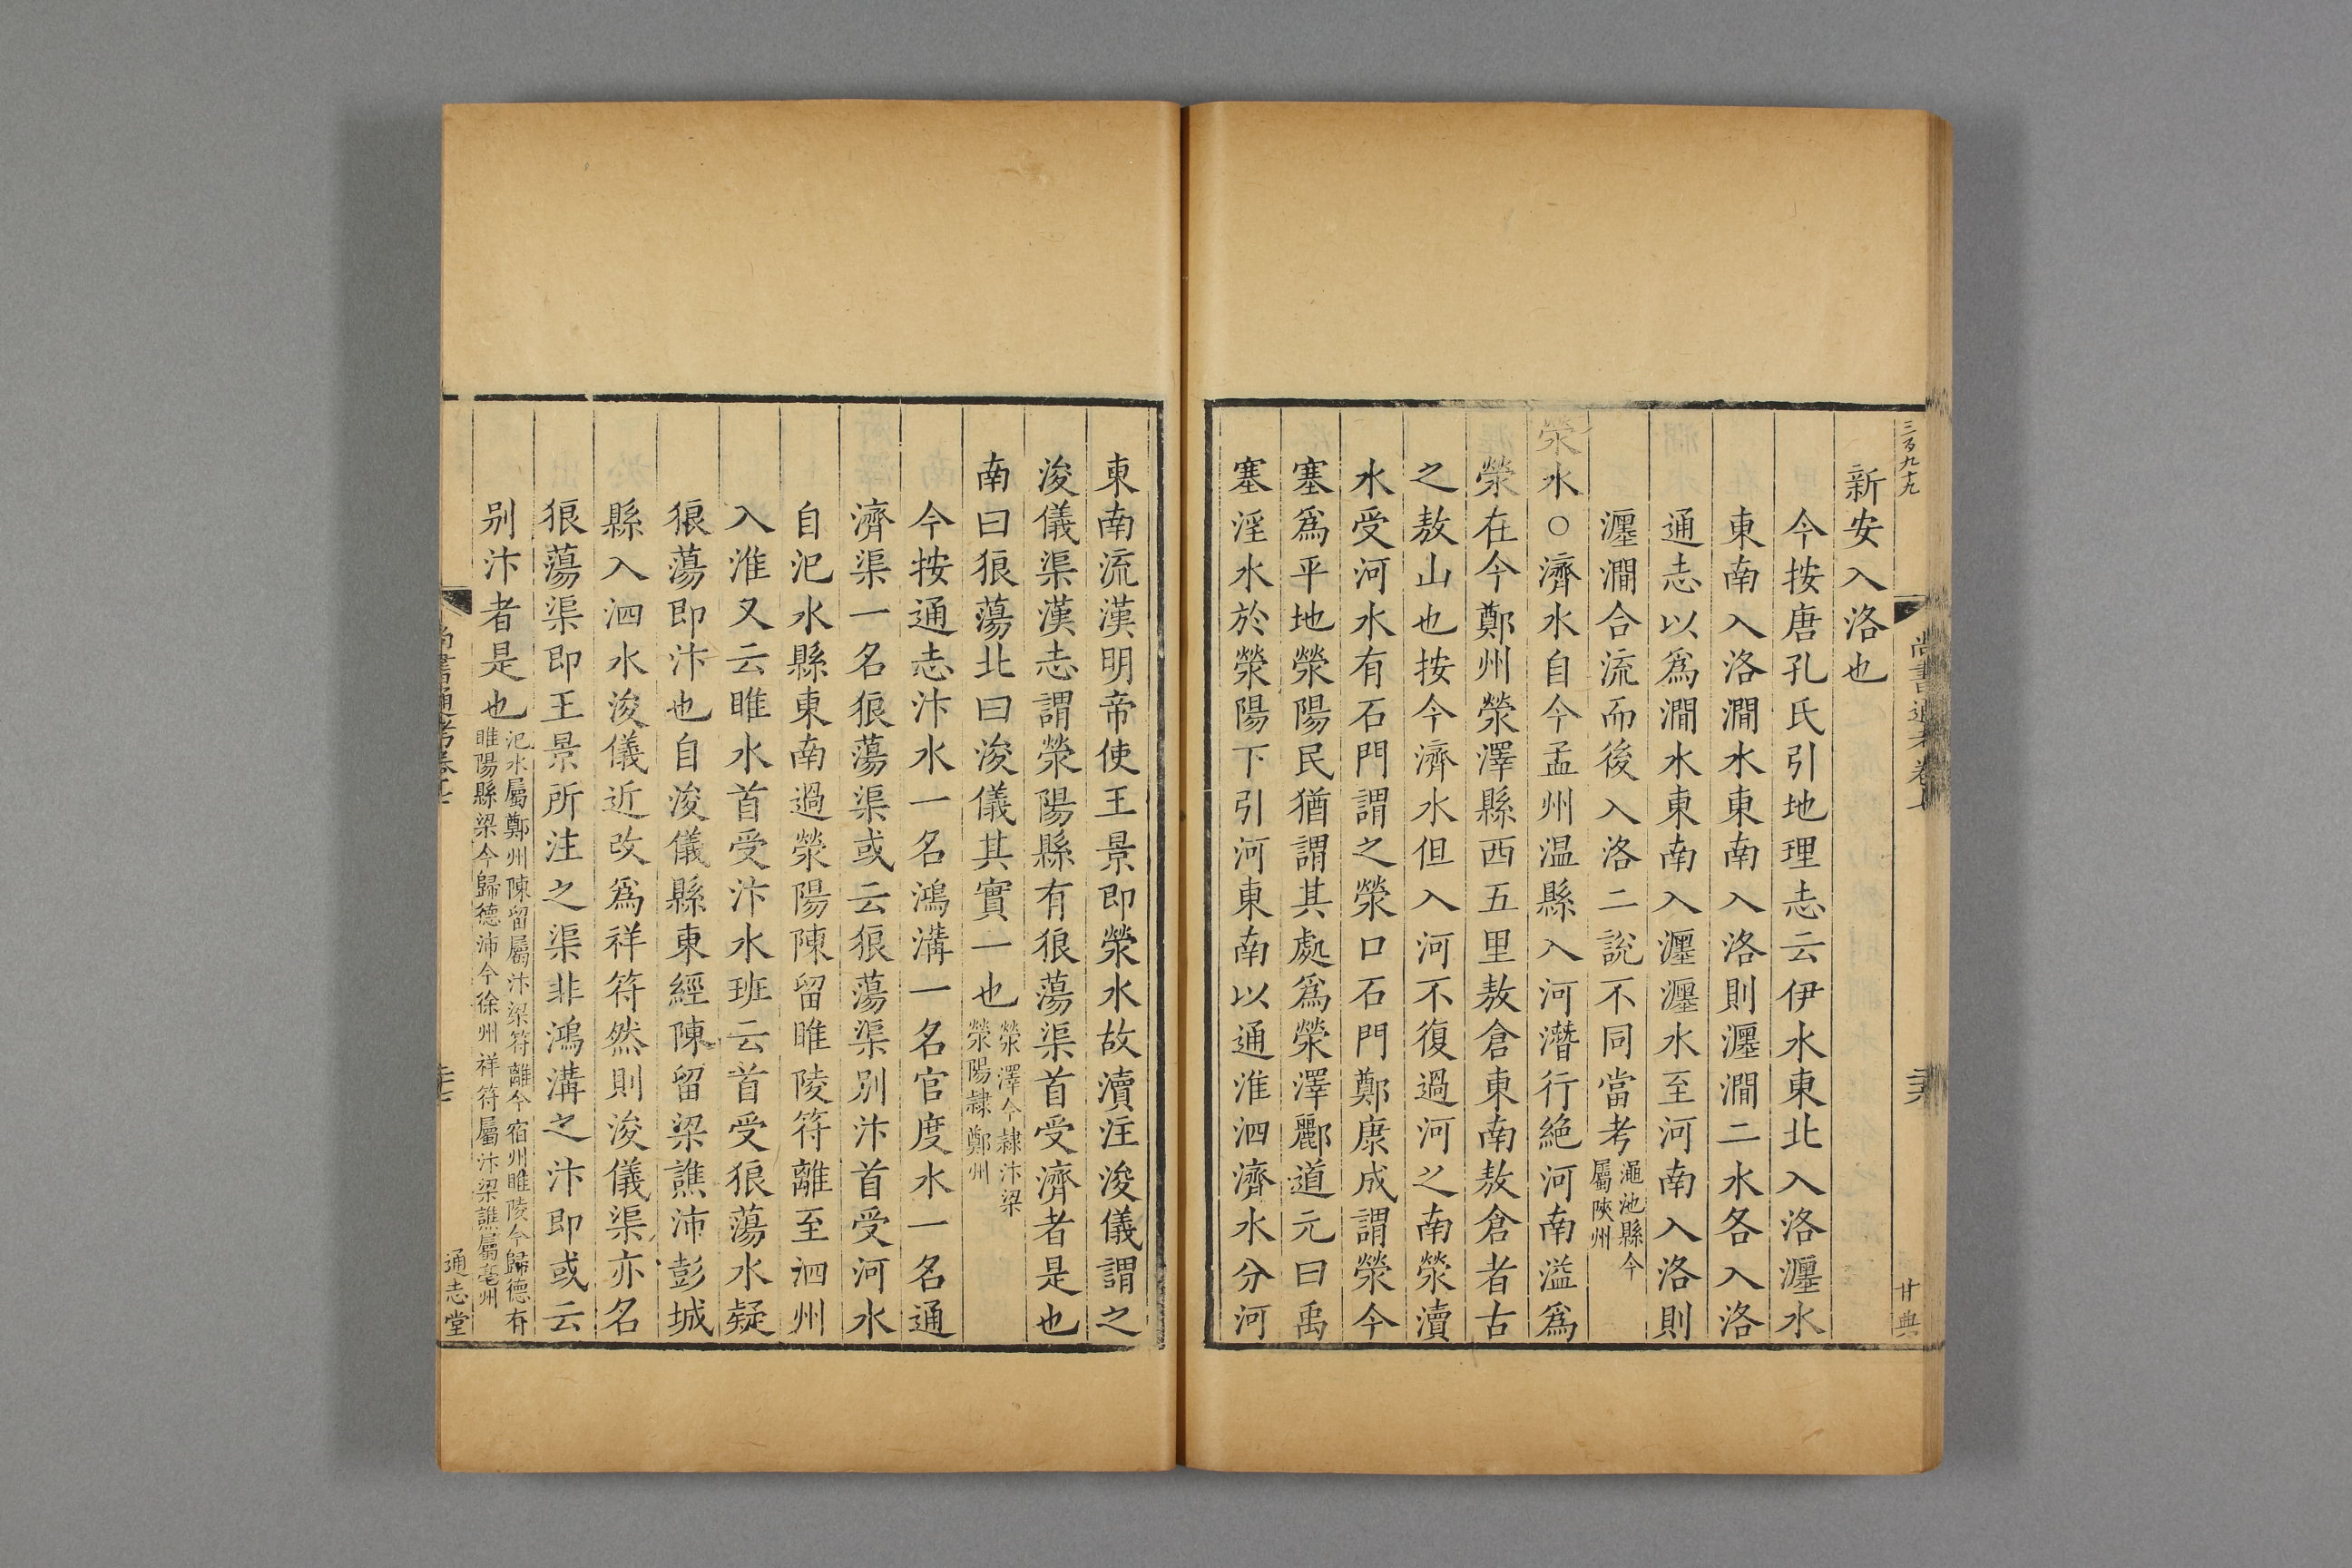 三百九十九
新安入洛也
今按唐孔氏引地理志云伊水東北入洛瀍水
東南入洛澗水東南入洛則瀍澗二水各入洛
通志以爲澗水東南入瀍瀍水至河南入洛則
瀍澗合流而後入洛二說不同當考
澠池縣今
屬陜州
滎水○濟水自今孟州温縣入河潛行絶河南溢爲
滎在今鄭州滎澤縣西五里敖倉東南敖倉者古
之敖山也按今濟水但入河不復過河之南滎瀆
水受河水有石門謂之滎口石門鄭康成謂滎今
塞爲平地滎陽民猶謂其處爲滎澤酈道元曰禹
塞淫水於滎陽下引河東南以通淮泗濟水分河
東南流漢明帝使王景即滎水故瀆注浚儀謂之
浚儀渠漢志謂滎陽縣有狼蕩渠首受濟者是也
南曰狼蕩北曰浚儀其實一也
滎澤今隸汴梁
滎陽隸鄭州
今按通志汴水一名鴻溝一名官度水一名通
濟渠一名狼蕩渠或云狼蕩渠別汴首受河水
自汜水縣東南過滎陽陳留睢陵符離至泗州
入淮又云睢水首受汴水班云首受狼蕩水疑
狼蕩即汴也自浚儀縣東經陳留梁譙沛彭城
縣入泗水浚儀近改爲祥符然則浚儀渠亦名
狼蕩渠即王景所注之渠非鴻溝之汴即或云
别汴者是也
汜水屬鄭州陳留屬汴梁符離今宿州睢陵今歸德有
睢陽縣梁今歸德沛今徐州祥符屬汴梁譙屬亳州
尚書通考卷七
甘典
通志堂